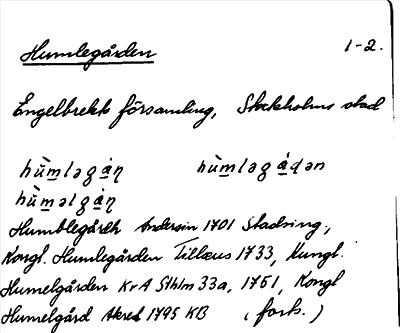 Humlegården 1-2.
Engelbrekts församling, Stockholms stad
hùmləgáɳ hùmləgáḍən
hùməlgáɳ
Humblegårdh Andersin 1701 Stadsing.,
Kongl. Humlegården Tillæus 1733, Kungl.
Humelgården KrA Sthlm 33a, 1751, Kongl
Humelgård Akrel 1795 KB (forts.)